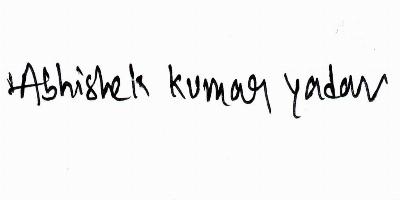 Abhishek kumar yadav